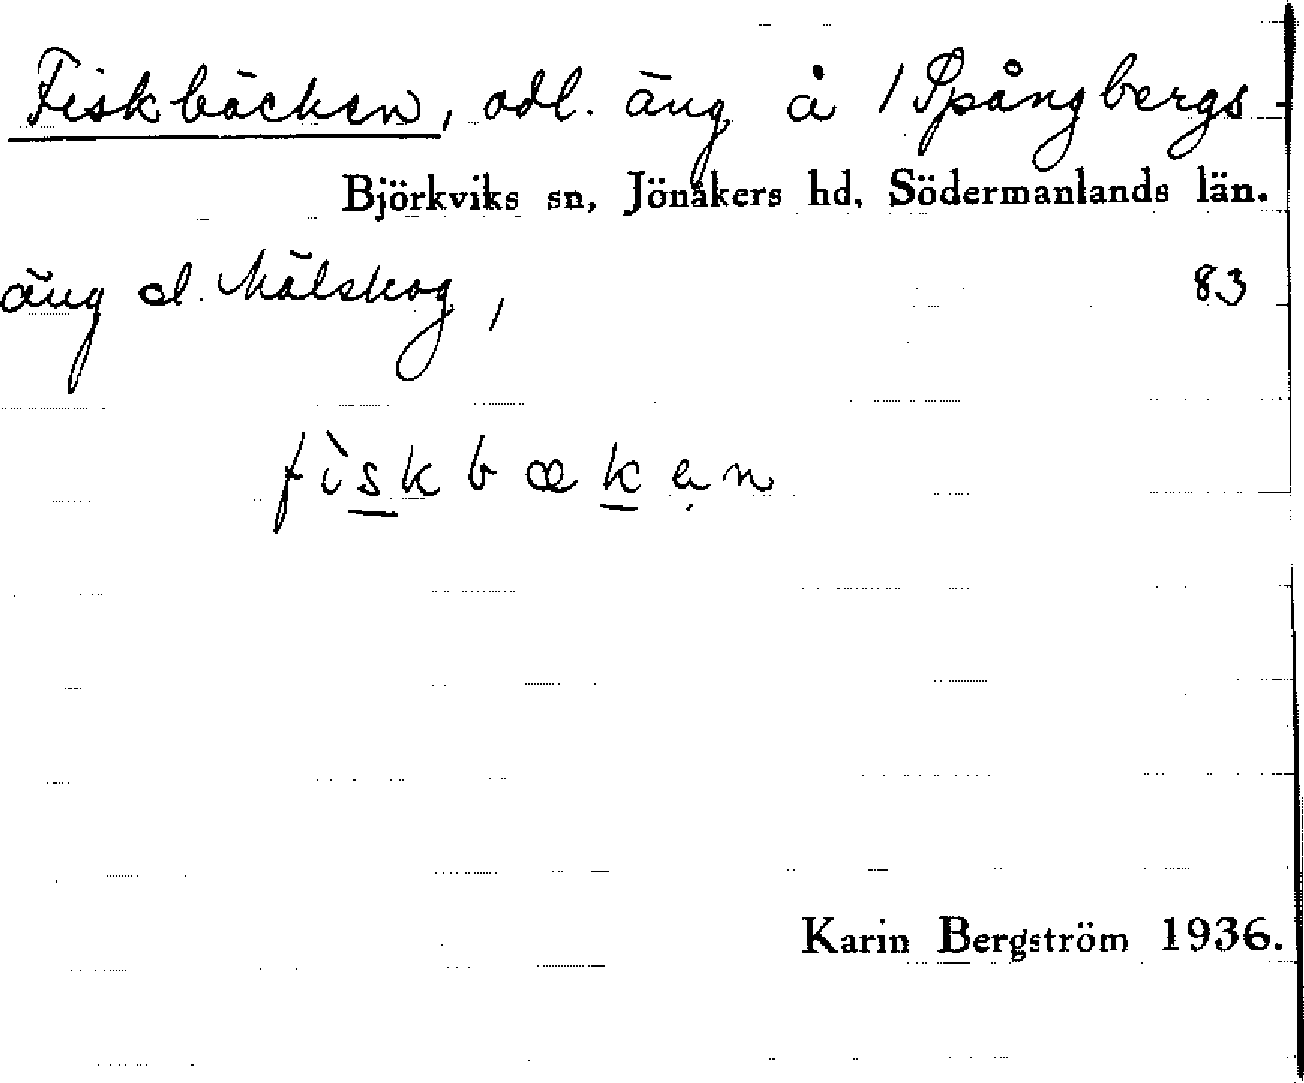 Fiskbäcken, odl. äng å /Spångbergs-
Björkviks sn, Jönåkers hd, Södermanlands län.
äng el. Mälskog, 83
fìskbæken
Karin Bergström 1936.